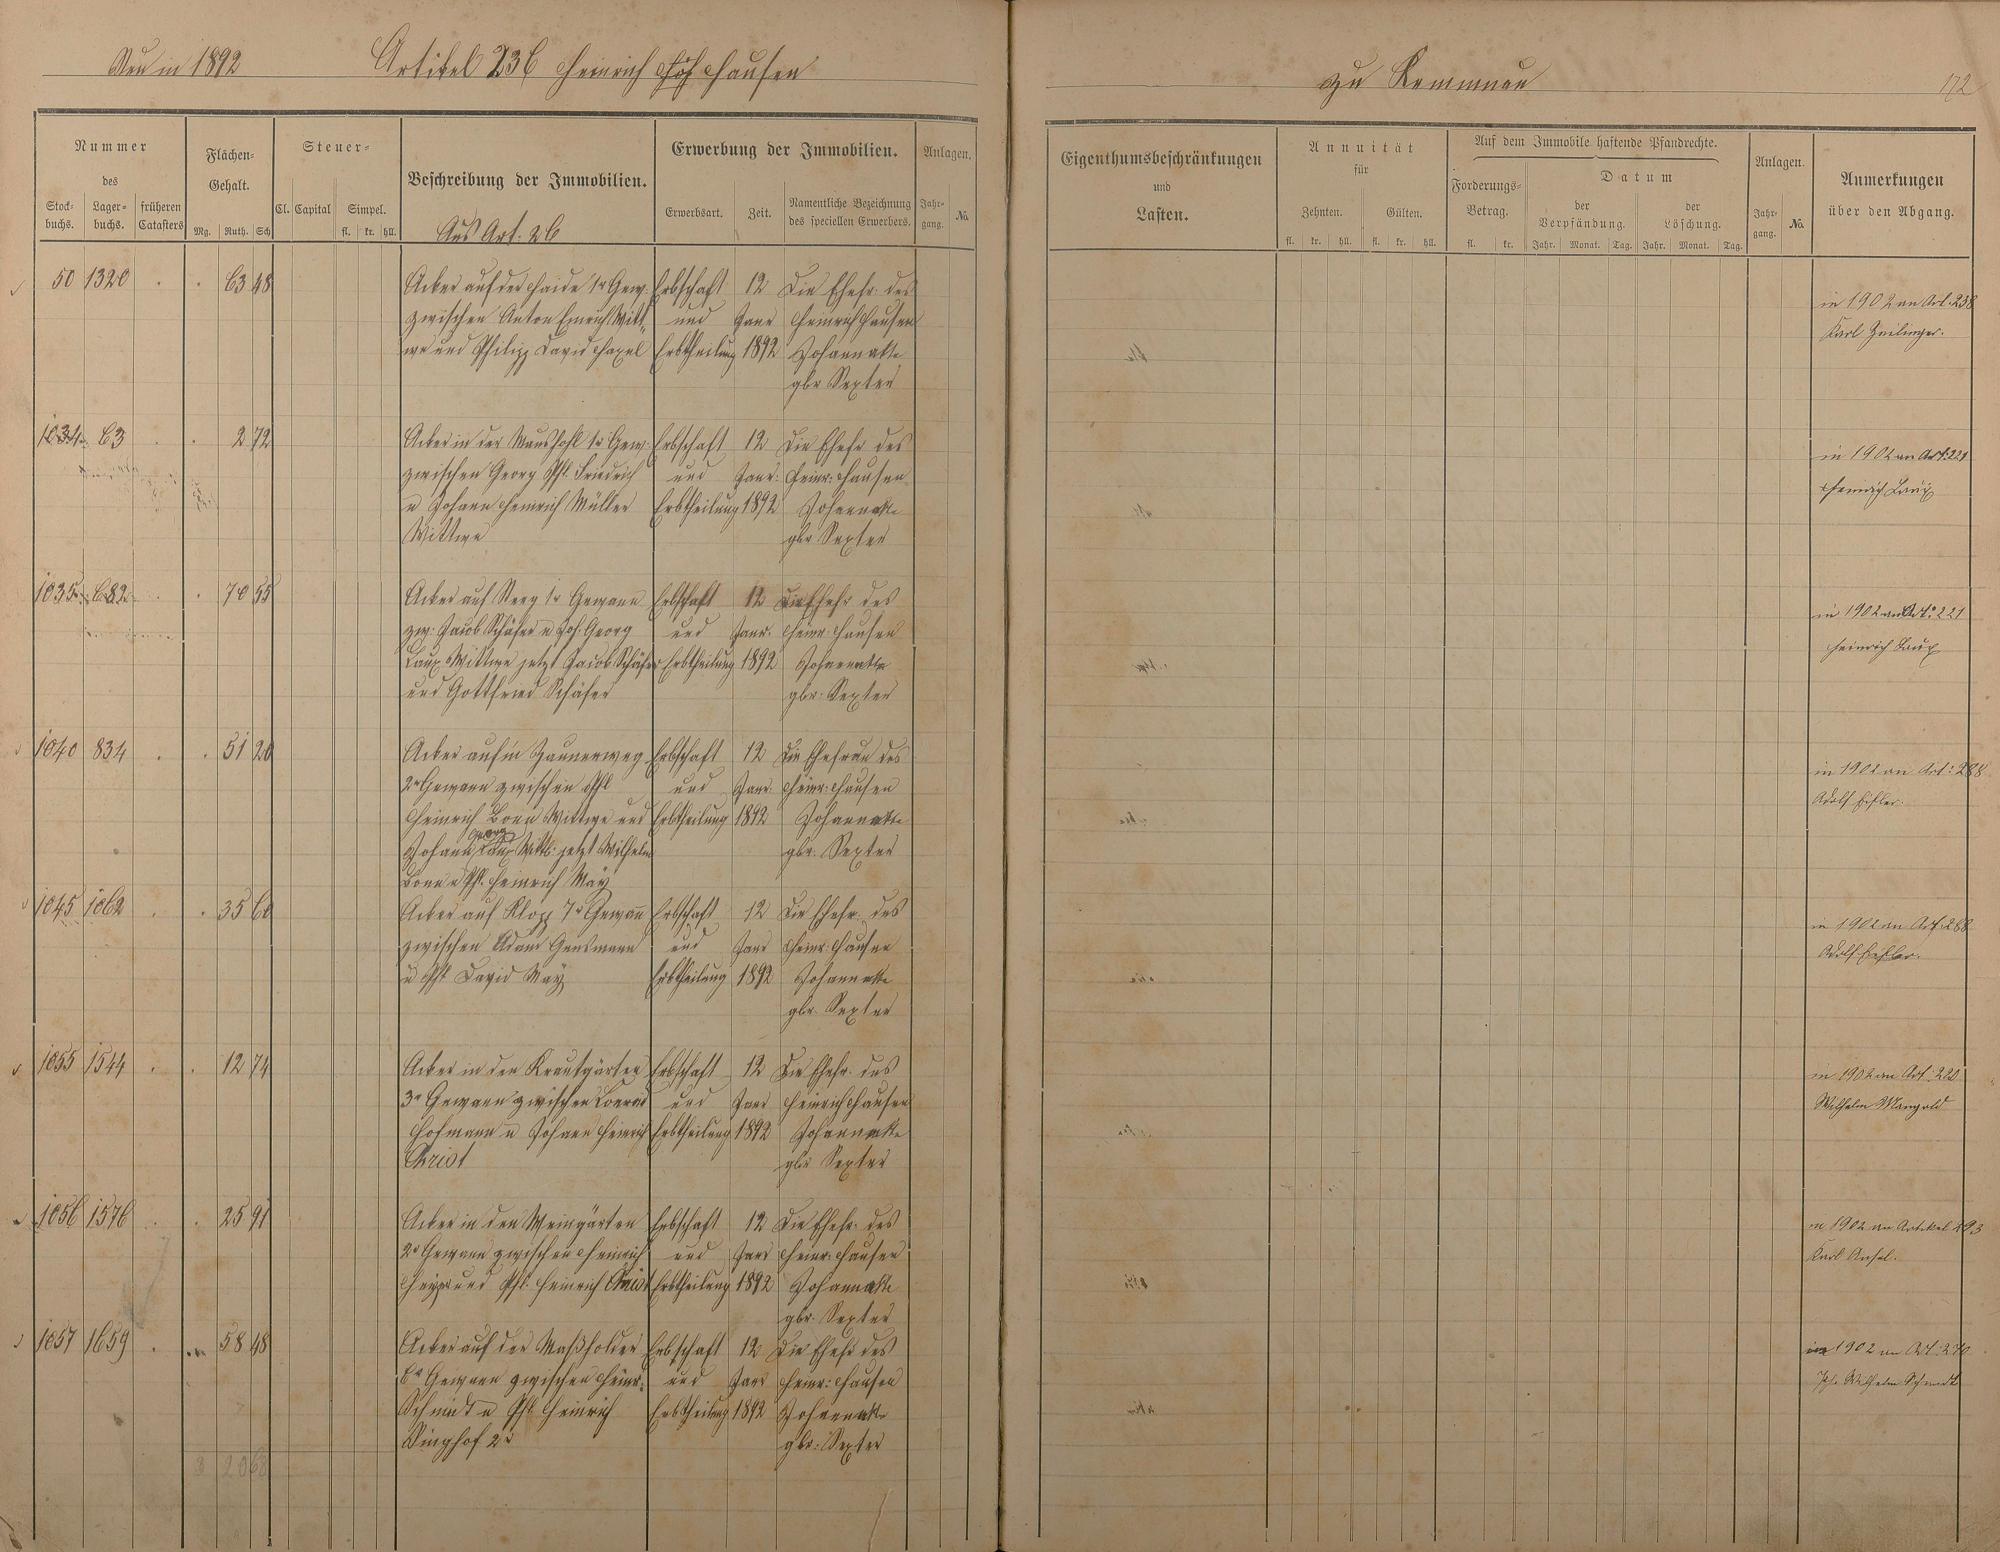 Neu in 1892
Artikel 236 Heinrich Hausen
zu Kemmenau
172
Nummer
des
Stock-
buchs.
Lager-
buchs.
früheren
Catasters
Flächen-
Gehalt.
Mg. Ruth. Sch
Steuer-
Cl. Capital Simpel.
fl. kr. hll.
Beschreibung der Immobilien.
Aus Art. 26
Erwerbung der Immobilien.
Erwerbsart. Zeit.
Namentliche Bezeichnung
des speciellen Erwerbers.
Anlagen.
Jahr-
gang.
No.
Eigenthumsbeschränkungen
und
Lasten.
Annuität
für
Zehnten. Gülten.
fl. kr. hll. fl. kr. hll.
Auf dem Immobile haftende Pfandrechte.
Forderungs-
Betrag.
fl. kr.
Datum
der
Verpfändung.
der
Löschung.
Jahr. Monat. Tag. Jahr. Monat. Tag.
Anlagen.
Jahr-
gang.
No.
Anmerkungen
über den Abgang.
50 1320 . . 63 48 Acker auf der Haide 1r Gew. Erbschaft 12 Die Ehefr. des
zwischen Anton Emrich Witt- und Janr Heinrich Hausen
we und Philipp David Erbtheilung 1892 Johannatte
gbr Sexter
in 1902 an Art. 238
Karl
1034 63 . . 2 72 Acker in der 1r Gew. Erbschaft 12 Die Ehefr des
zwischen Georg Phl. Friedrich und Janr. Heinr: Hausen
u Johann Heinrich Müller Erbtheilung 1892 Johannatte
Wittwe gbr Sexter
in 1902 an Art. 221
Heinrich Laux
1035 682 . . 70 55 Acker auf 1r Gewann Erbschaft 12 Die Ehefr des
zw. Jacob Schäfer u Joh. Georg und Janr. Heinr. Hausen
Laux Wittwe jetzt Jacob Schäfer Erbtheilung 1892 Johannatte
und Gottfried Schäfer gbr: Sexter
in 1902 an Art. 221
Heinrich Laux
1040 834 . . 51 20 Acker auf'm Erbschaft 12 Die Ehefrau des
2r Gewann zwischen Phl und Janr. Heinr: Hausen
Heinrich Bonn Wittwe und Erbtheilung 1892 Johannatte
Georg
Johann Laux Wittw: jetzt Wilhelm gbr. Sexter
Bonn u Phl. Heinrich May
in 1902 an Art: 288
Adolf
1045 1062 . . 35 60 Acker auf Klopp 7r Gewann Erbschaft 12 Die Ehefr. des
zwischen Adam Gensmann und Janr Heinr: Hausen
u Phl David May Erbtheilung 1892 Johannatte
gbr. Sexter
in 1902 an Art. 288
Adolf
1055 1544 . . 12 74 Acker in den Krautgärten Erbschaft 12 Die Ehefr. des
3r Gewann zwischen Conrad und Janr Heinrich Hausen
Hofmann u Johann Heinrich Erbtheilung 1892 Johannatte
Christ gbr Sexter
in 1902 an Art. 220
Wilhelm Mangold
1056 1576 . . 25 91 Acker in den Weingärten Erbschaft 12 Die Ehefr. des
2r Gewann zwischen Heinrich und Janr Heinr: Hausen
und Phl. Heinrich Christ Erbtheilung 1892 Johannatte
gbr. Sexter
in 1902 an Artikel 293
Karl
1057 1659 . 58 48 Acker auf der Maßholder Erbschaft 12 Die Ehefr des
6r Gewann zwischen Heinr. und Janr Heinr: Hausen
Schmidt u Phl Heinrich Erbtheilung 1892 Johannatte
2r gbr: Sexter
in 1902 an Art. 270
Wilhelm Schmidt
3 20 68